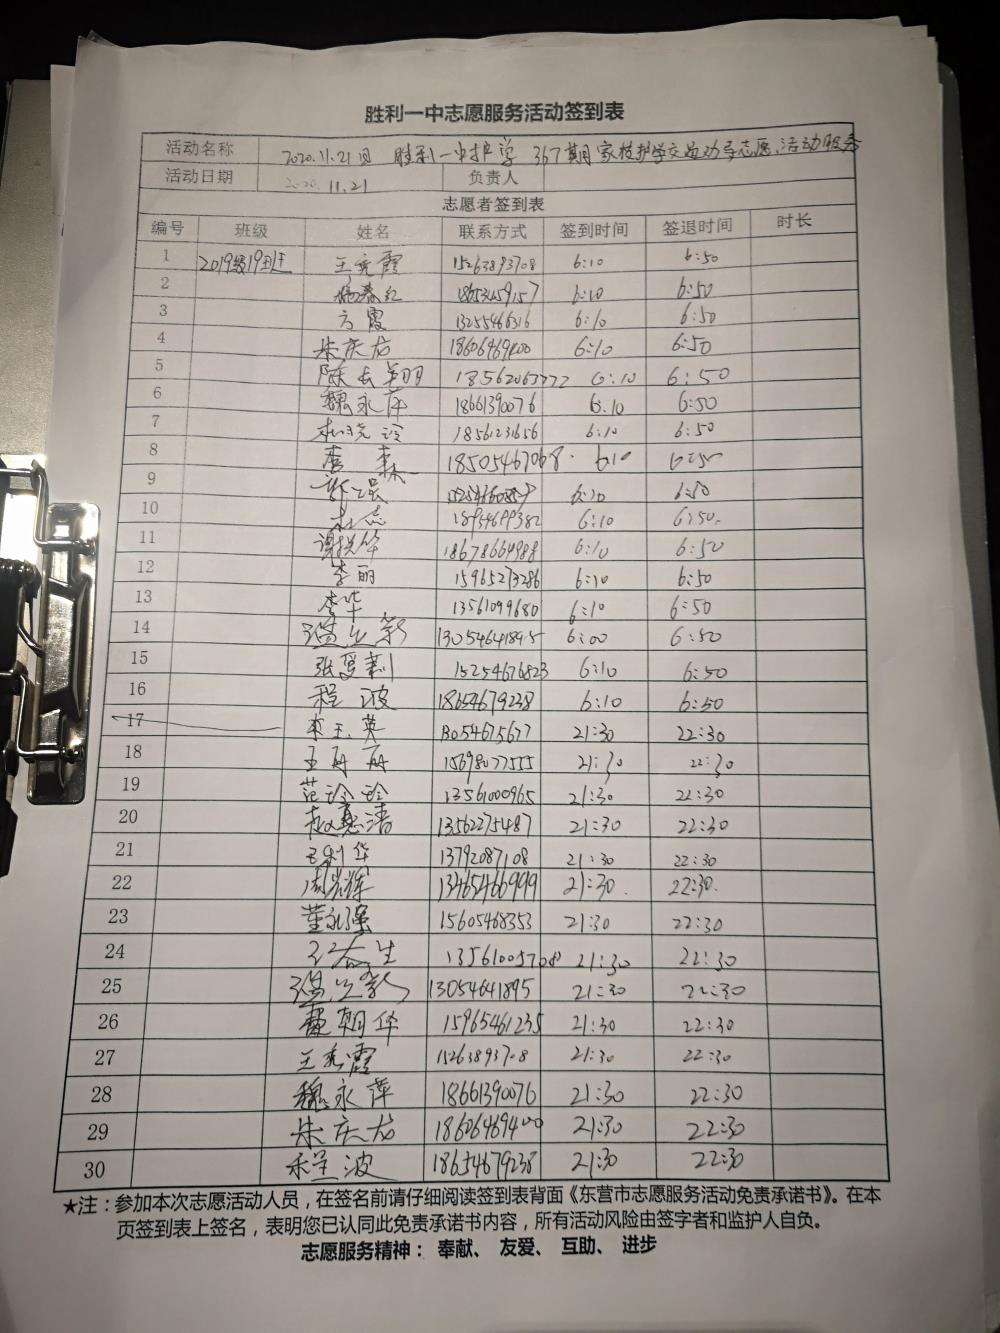 胜利一中志愿服务活动签到表
活动名称 2020.11.21日 胜利一中护学 367期家校护学交通劝导志愿活动服务
活动日期 2020.11.21 负责人
志愿者签到表
编号 班级 姓名 联系方式 签到时间 签退时间 时长
1 2019级19班 王秀霞 15263893708 6:10 6:50
2 杨春红 6:10 6:50
3 方霞 13255466316 6:10 6:50
4 朱庆龙 18606469400 6:10 6:50
5 陈长翔 18562063772 6:10 6:50
6 魏永萍 18661390076 6:10 6:50
7 6:10 6:50
8 李森 18505467068 6:10 6:50
9 6:10 6:50
10 18954699382 6:10 6:50
11 18678664988 6:10 6:50
12 李丽 15965273286 6:10 6:50
13 李华 13561099680 6:10 6:50
14 温立新 13054641895 6:00 6:50
15 张曼莉 15254676823 6:10 6:50
16 程波 18654679238 6:10 6:50
17 李玉英 13054675677 21:30 22:30
18 王丹丹 15698077555 21:30 22:30
19 范玲玲 13561000965 21:30 22:30
20 赵惠清 13562275487 21:30 22:30
21 王利华 13792087108 21:30 22:30
22 13465466999 21:30 22:30
23 董永强 15605468353 21:30 22:30
24 13561005708 21:30 22:30
25 温立新 13054641895 21:30 22:30
26 朝华 15965461235 21:30 22:30
27 王秀霞 15263893708 21:30 22:30
28 魏永萍 18661390076 21:30 22:30
29 朱庆龙 18606469400 21:30 22:30
30 程波 18654679238 21:30 22:30
★注：参加本次志愿活动人员，在签名前请仔细阅读签到表背面《东营市志愿服务活动免责承诺书》。在本
页签到表上签名，表明您已认同此免责承诺书内容，所有活动风险由签字者和监护人自负。
志愿服务精神： 奉献、 友爱、 互助、 进步